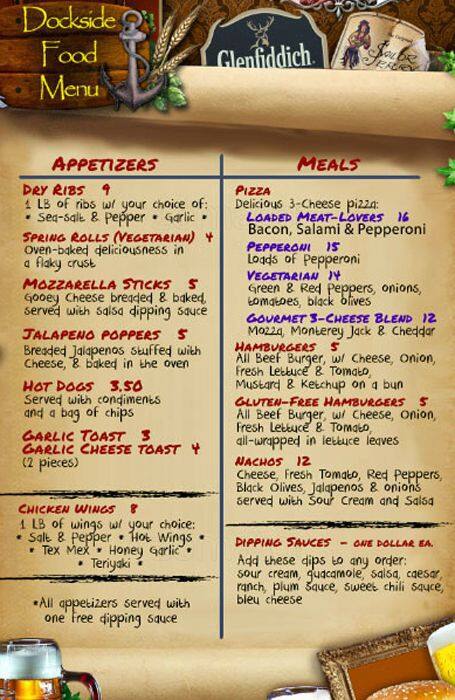 Dockside
Food
Menu
Glenfiddich
Sailor
Jerry
APPETIZERS
DRY RIBS 9
1 LB of ribs w/ your choice of:
* Sea-salt & Pepper * Garlic *
SPRING ROLLS (VEGETARIAN) 4
Oven-baked deliciousness in
a flaky crust
MOZZARELLA STICKS 5
Gooey Cheese breaded & baked,
served with salsa dipping sauce
JALAPENO POPPERS 5
Breaded Jalapenos stuffed with
Cheese, & baked in the oven
HOT DOGS 3.50
Served with condiments
and a bag of chips
GARLIC TOAST 3
GARLIC CHEESE TOAST 4
(2 pieces)
CHICKEN WINGS 8
1 LB of wings w/ your choice:
* Salt & Pepper * Hot Wings *
* Tex Mex * Honey Garlic *
* Teriyaki *
*All appetizers served with
one free dipping sauce
MEALS
PIZZA
Delicious 3-Cheese pizza:
LOADED MEAT-LOVERS 16
Bacon, Salami & Pepperoni
PEPPERONI 15
Loads of Pepperoni
VEGETARIAN 14
Green & Red Peppers, onions,
tomatoes, black olives
GOURMET 3-CHEESE BLEND 12
Mozza, Monterey Jack & Cheddar
HAMBURGERS 5
All Beef Burger, w/ Cheese, Onion,
Fresh Lettuce & Tomato,
Mustard & Ketchup on a bun
GLUTEN-FREE HAMBURGERS 5
All Beef Burger, w/ Cheese, Onion,
Fresh Lettuce & Tomato,
all-wrapped in lettuce leaves
NACHOS 12
Cheese, Fresh Tomato, Red Peppers,
Black Olives, Jalapenos & onions
served with Sour Cream and Salsa
DIPPING SAUCES - ONE DOLLAR EA.
Add these dips to any order:
sour cream, guacamole, salsa, caesar,
ranch, plum sauce, sweet chili sauce,
bleu cheese